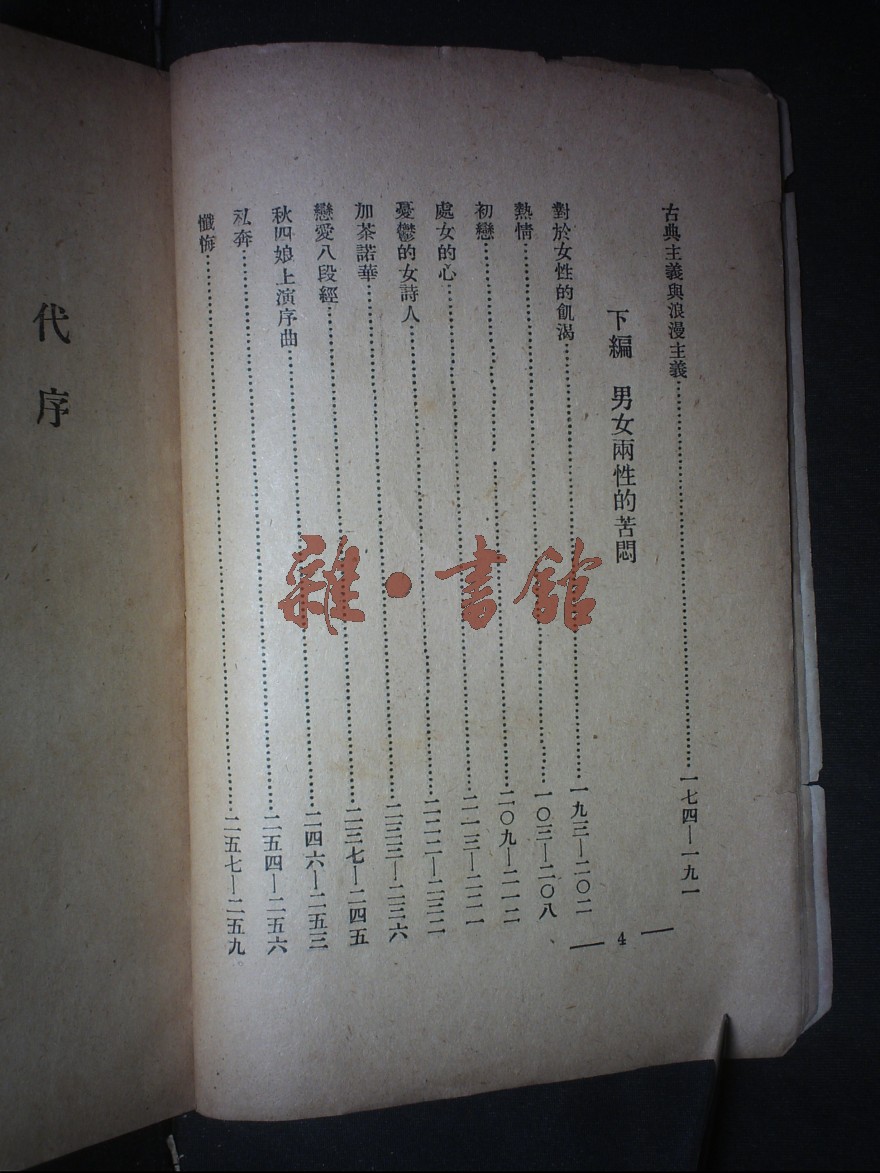 古典主義與浪漫主義……………………一七四—一九一
下編　男女兩性的苦悶
對於女性的飢渴……………………一九三—二〇二
熱情……………………一〇三—二〇八
初戀……………………二〇九—二一二
處女的心……………………二一三—二二一
憂鬱的女詩人……………………二二二—二三二
加茶諾華……………………二三三—二三六
戀愛八段經……………………二三七—二四五
秋四娘上演序曲……………………二四六—二五三
私奔……………………二五四—二五六
懺悔……………………二五七—二五九。
— 4 —
代序
雜·書館